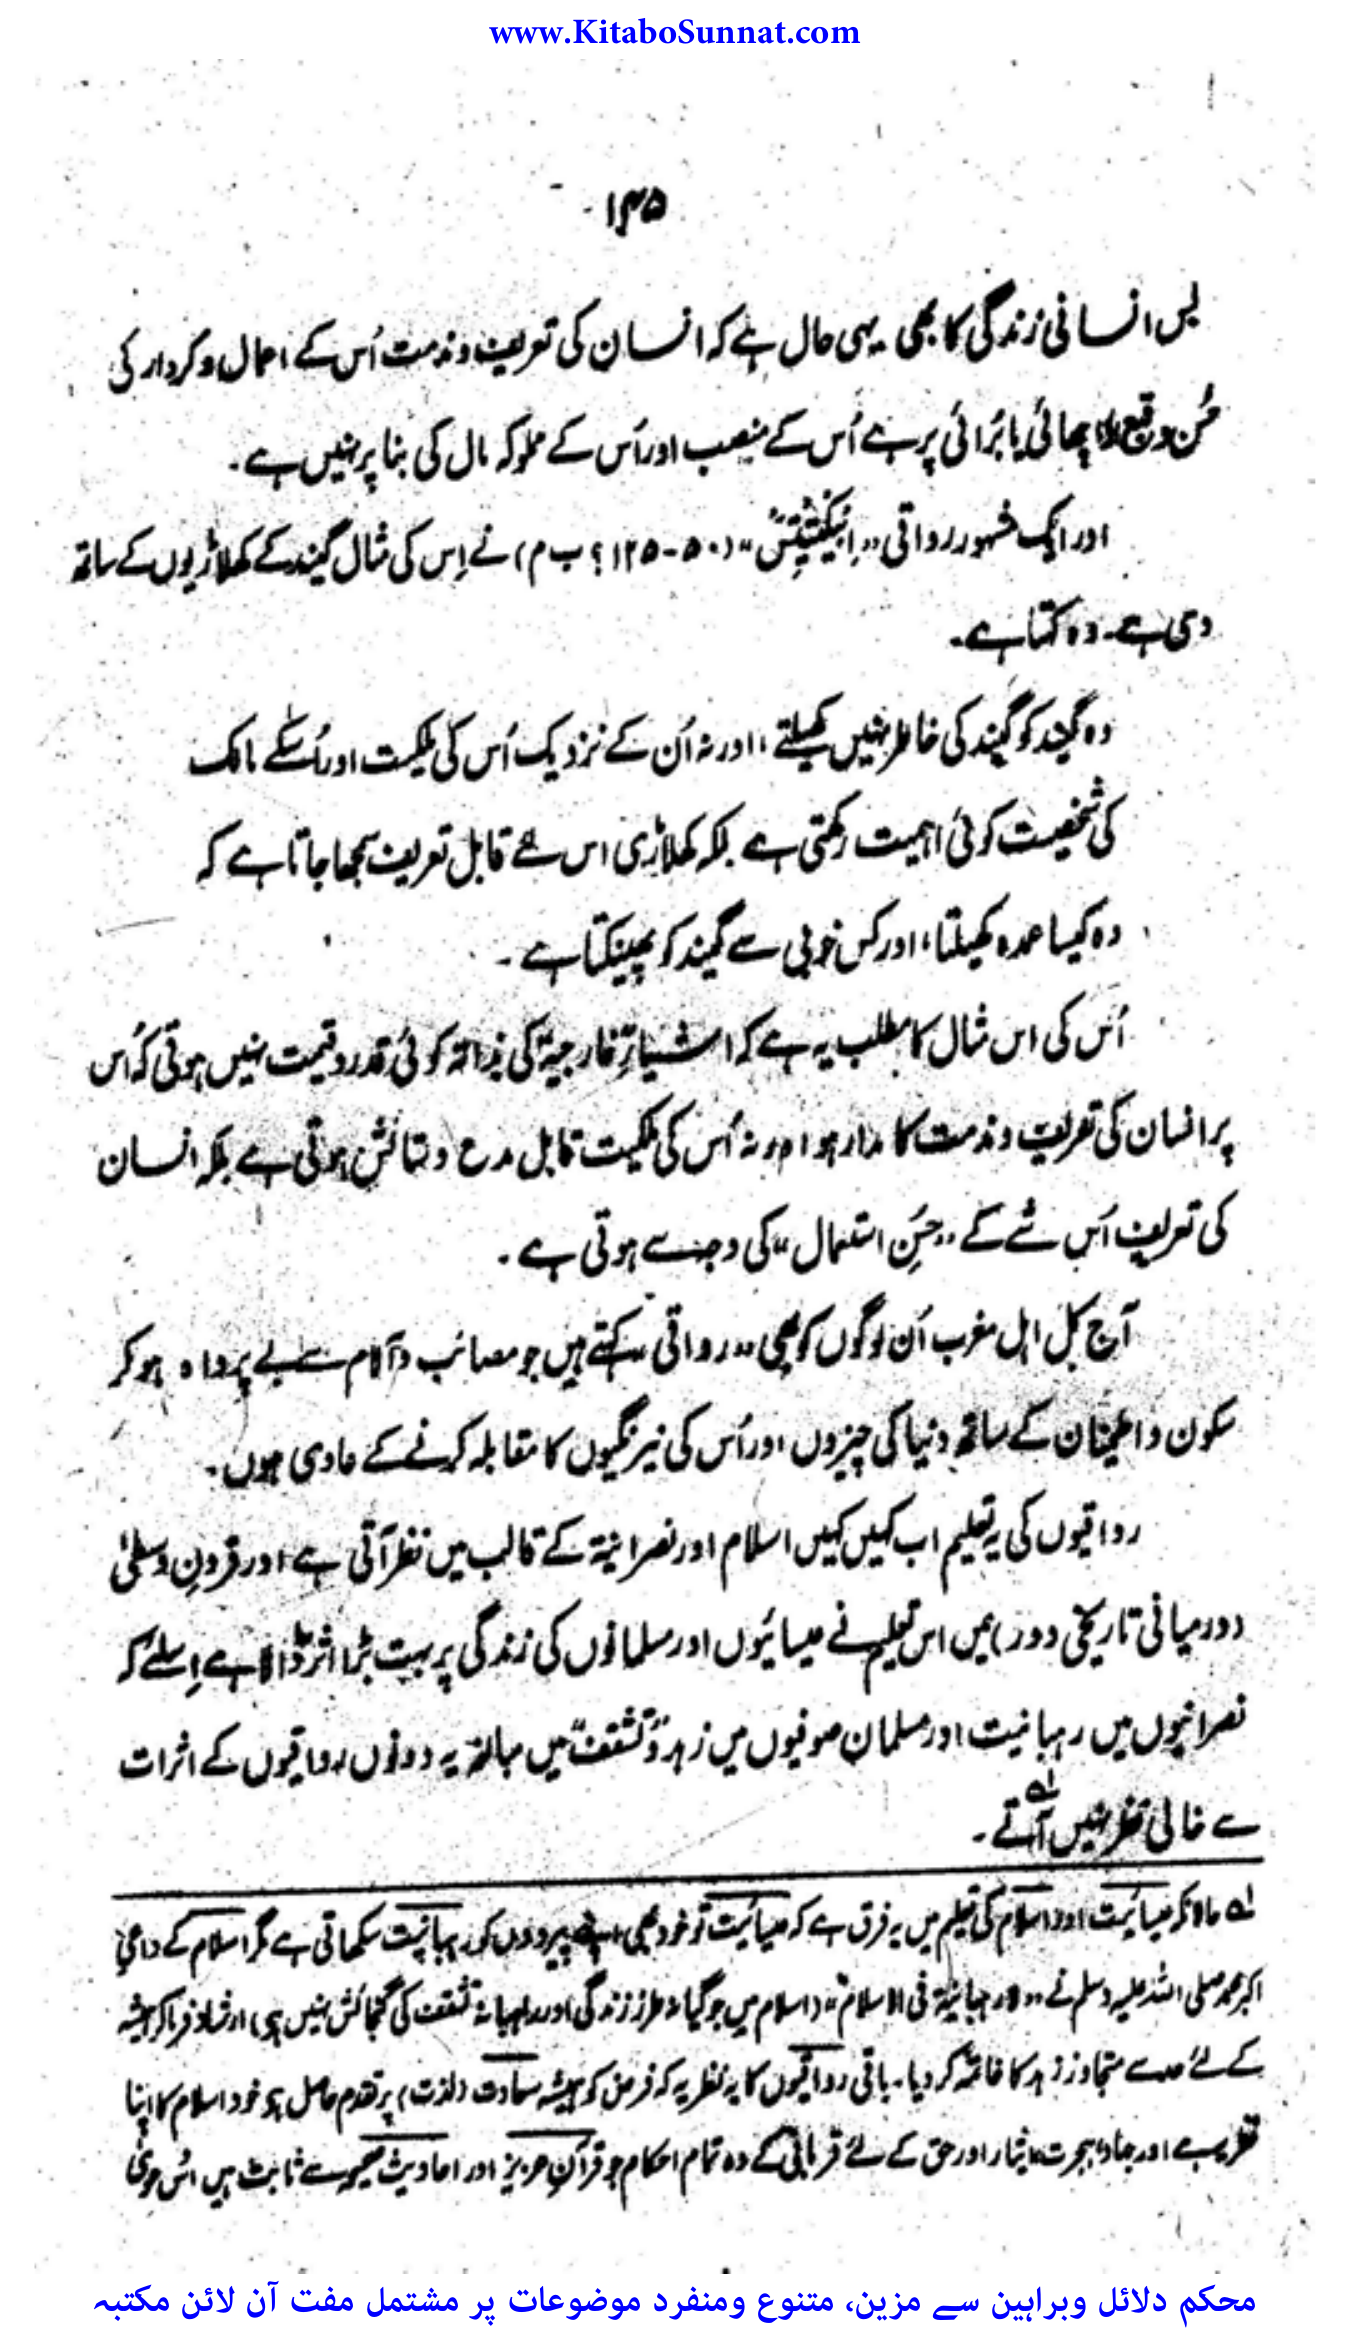 www.KitaboSunnat.com
۱۴۵
پس انسانی زندگی کا بھی یہی حال ہے کہ انسان کی تعریف و مذمت اُس کے اعمال و کردار کی
حُسن و قبح اچھائی یا بُرائی پر ہے اُس کے منصب اور اُس کے مملوکہ مال کی بنا پر نہیں ہے۔
اور ایک مشہور رواقی "اِبیکٹیٹِس" (۵۰-۱۲۵؟ ب م) نے اِس کی مثال گیند کے کھلاڑیوں کے ساتھ
دی ہے۔ وہ کہتا ہے۔
وہ گیند کو گیند کی خاطر نہیں کھیلتے، اور نہ اُن کے نزدیک اُس کی ملکیت اور اُسکے مالک
کی شخصیت کوئی اہمیت رکھتی ہے بلکہ کھلاڑی اس لئے قابل تعریف سمجھا جاتا ہے کہ
وہ کیسا عمدہ کھیلتا، اور کس خوبی سے گیند کو پھینکتا ہے۔
اُس کی اس مثال کا مطلب یہ ہے کہ اشیاءِ خارجیہ کی بذاتہٖ کوئی قدر و قیمت نہیں ہوتی کہ اُس
پر انسان کی تعریف و مذمت کا مدار ہو اور نہ اُس کی ملکیت قابل مدح و ستائش ہوتی ہے بلکہ انسان
کی تعریف اُس شے کے "حسنِ استعمال" کی وجہ سے ہوتی ہے۔
آج کل اہل مغرب اُن لوگوں کو بھی "رواقی" کہتے ہیں جو مصائب و آلام سے بے پرواہ ہو کر
سکون و اطمینان کے ساتھ دنیا کی چیزوں اور اُس کی نیرنگیوں کا مقابلہ کرنے کے عادی ہوں۔
رواقیوں کی یہ تعلیم اب کہیں کہیں اسلام اور نصرانیۃ کے قالب میں نظر آتی ہے اور قرونِ وسطیٰ
(درمیانی تاریخی دور) میں اس تعلیم نے عیسائیوں اور مسلمانوں کی زندگی پر بہت بڑا اثر ڈالا ہے اِسلئے کہ
نصرانیوں میں رہبانیت اور مسلمان صوفیوں میں زہد و تقشف میں مبالغہ یہ دونوں رواقیوں کے اثرات
سے خالی نظر نہیں آتے۔ لہ
لہ حالانکہ عیسائیت اور اسلام کی تعلیم میں یہ فرق ہے کہ عیسائیت تو خود بھی اپنے پیرووں کو رہبانیت سکھاتی ہے مگر اسلام کے داعیِ
اکبر محمد صلی اللہ علیہ وسلم نے "لا رہبانیۃ فی الاسلام" (اسلام میں جوگیانہ طرز زندگی اور راہبانہ تقشف کی گنجائش نہیں ہے) ارشاد فرما کر ہمیشہ
کے لئے حد سے متجاوز زہد کا خاتمہ کر دیا۔ باقی رواقیوں کا یہ نظریہ کہ فرض کو ہمیشہ سعادت (لذت) پر تقدم حاصل ہو خود اسلام کا اپنا
نظریہ ہے اور جہاد، ہجرت، ایثار اور حق کے لئے قربانی کے وہ تمام احکام جو قرآن عزیز اور احادیث صحیحہ سے ثابت ہیں اس
محکم دلائل وبراہین سے مزین، متنوع ومنفرد موضوعات پر مشتمل مفت آن لائن مکتبہ